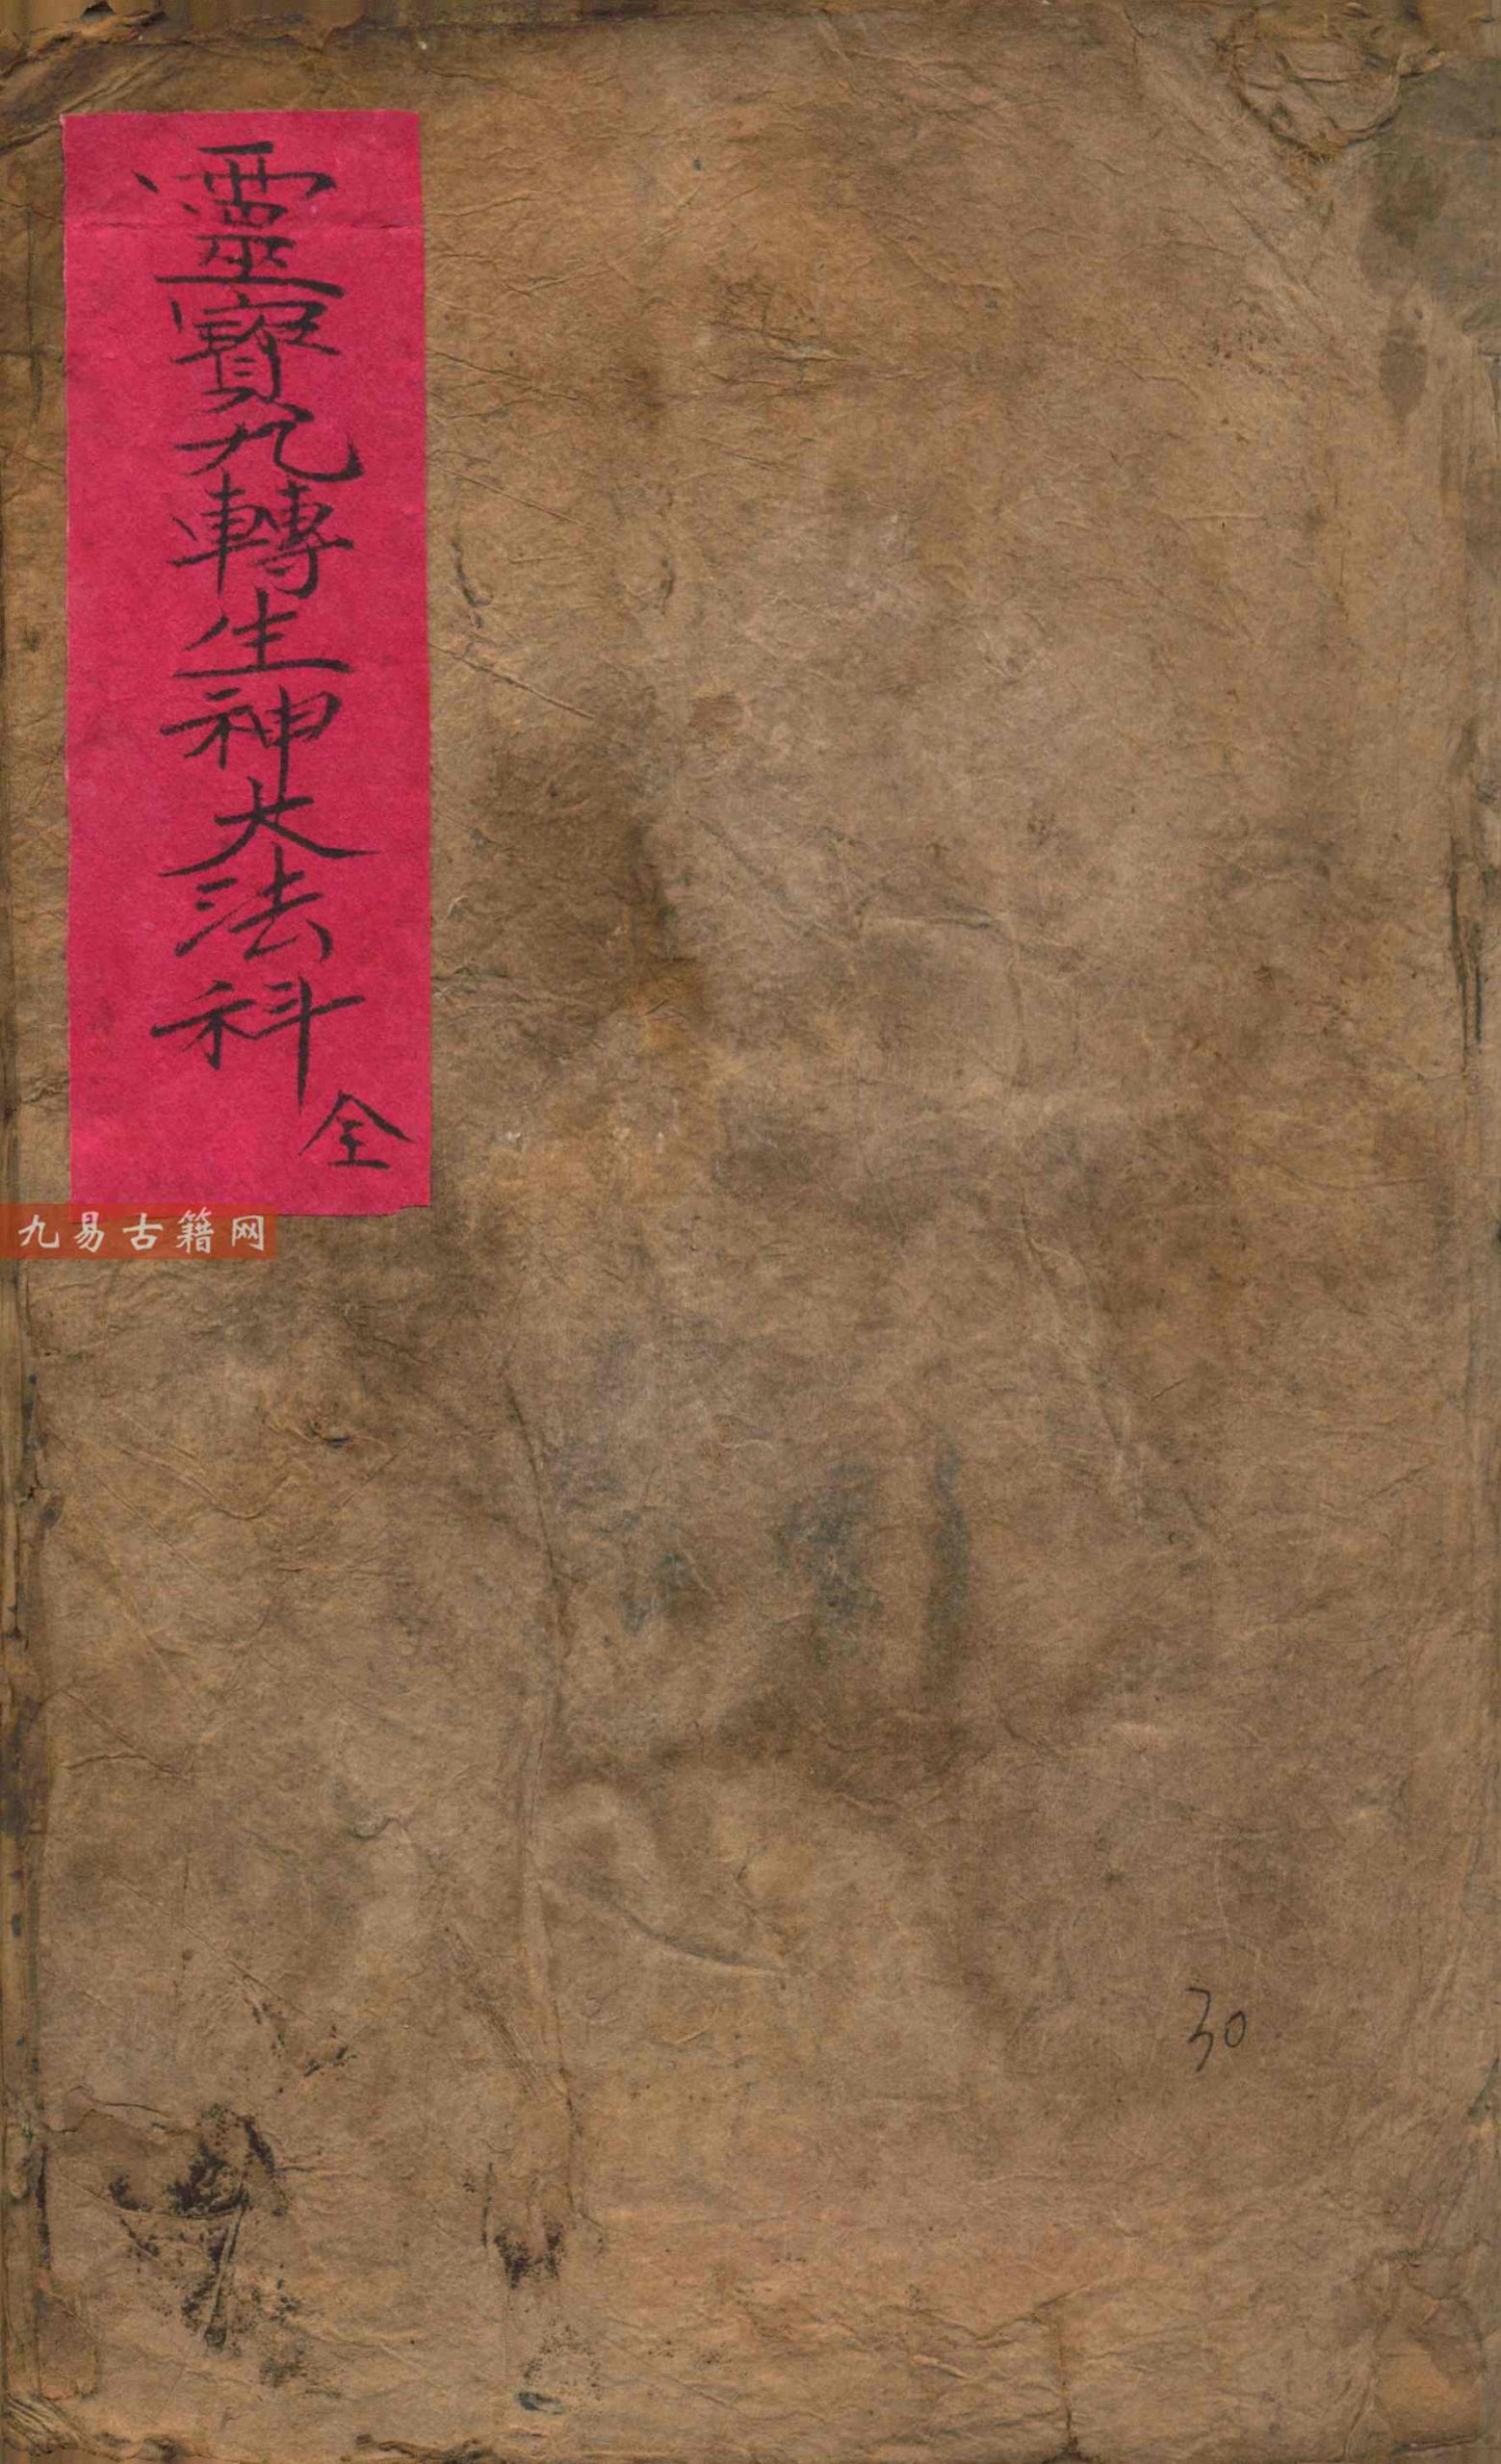 靈寶九轉生神大法科
全
九易古籍网
30